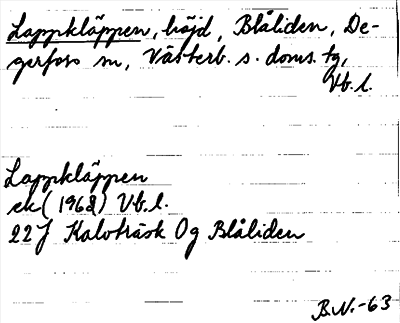 Lappkläppen, höjd, Blåliden, De-
gerfors sn, Västerb. s. doms. tg,
Vb. l.
Lappkläppen
ek (1968) Vb. l.
22J Kalvträsk Og Blåliden
B.N.-63